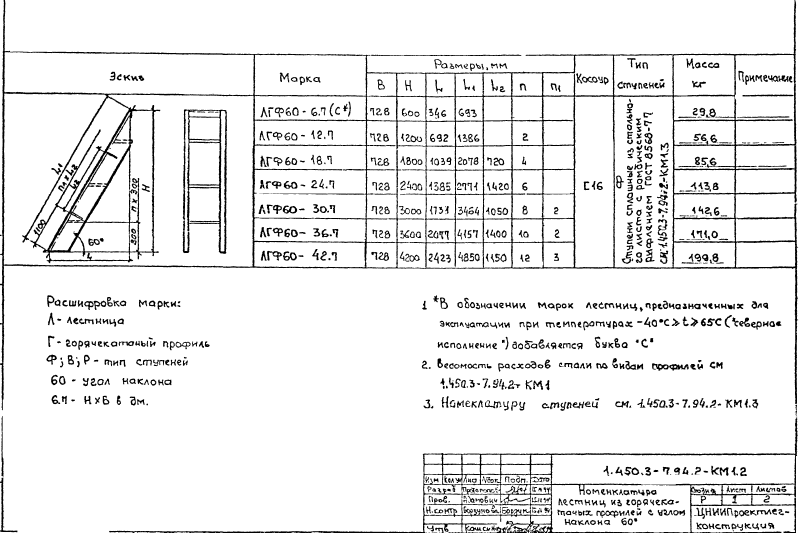 Эскиз Марка Размеры, мм Косоур Тип ступеней Масса кг Примечание
B H L L1 L2 n n1
ЛГФ60-6.7(С*) 728 600 346 693 29,8
ЛГФ60-12.7 728 1200 692 1386 2 56,6
ЛГФ60-18.7 728 1800 1039 2078 720 4 85,6
ЛГФ60-24.7 728 2400 1385 2771 1420 6 113,8
ЛГФ60-30.7 728 3000 1731 3464 1050 8 2 142,6
ЛГФ60-36.7 728 3600 2077 4157 1400 10 2 171,0
ЛГФ60-42.7 728 4200 2423 4850 1150 12 3 199,8
[16
Ф
Ступени сплошные из стально-
го листа с ромбическим
рифлением ГОСТ 8568-77
см. 1.450.3-7.94.2-КМ1.3
L1
n1 x L2
L2
1100
60°
L
H
n x 300
300
Расшифровка марки:
Л - лестница
Г - горячекатаный профиль
Ф; В; Р - тип ступеней
60 - угол наклона
6.7 - НхБ в дм.
1 *В обозначении марок лестниц, предназначенных для
эксплуатации при температурах -40°С≥t≥65С ("северное
исполнение") добавляется буква "С"
2. Весомость расходов стали по видам профилей см
1.450.3-7.94.2- КМ1
3. Номеклатуру ступеней см. 1.450.3-7.94.2-КМ1.3
1.450.3-7.94.2-КМ1.2
Изм Кол.уч Лист №док Подп. Дата
Разраб
Пров.
Н.контр Борзунова
Утв
Номенклатура
лестниц из горячека-
таных профилей с углом
наклона 60°
Стадия Лист Листов
Р 1 2
ЦНИИПроектлег-
конструкция